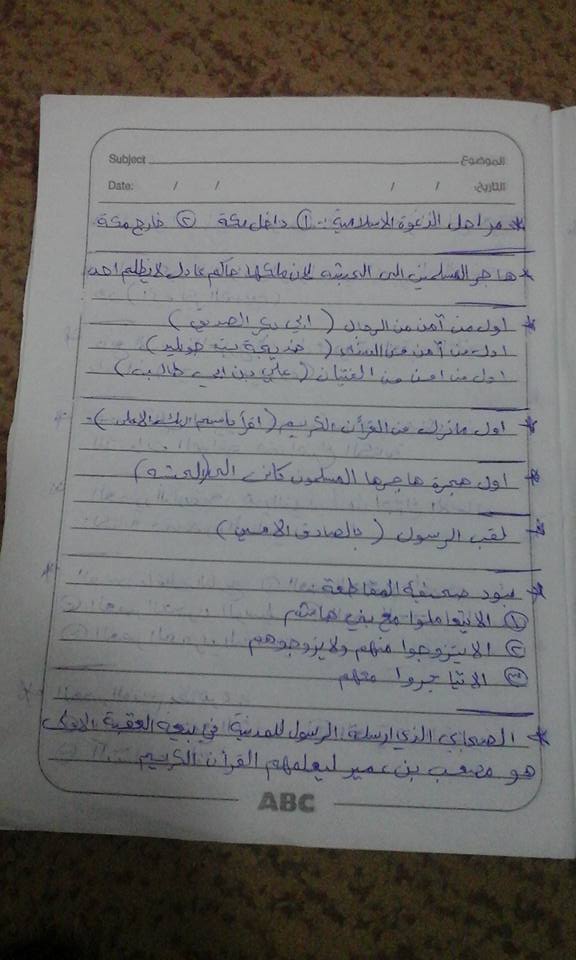 Subject الموضوع
Date: / / / / التاريخ:
* مراحل الدعوة الاسلامية :- ① داخل مكة ② خارج مكة
* هاجر المسلمين الى الحبشه لان ملكها حاكم عادل لا يظلم احد
* اول من آمن من الرجال ( ابي بكر الصديق )
اول من آمن من النساء ( خديجة بنت خويلد )
اول من امن من الفتيان ( علي بن ابي طالب )
* اول مانزل من القرآن الكريم ( اقرأ باسم ربك الاعلى )
* اول هجرة هاجرها المسلمون كانت الى (الحبشه)
* لقب الرسول ( بالصادق الامين )
* بنود صحيفة المقاطعة :
① الا يتعاملوا مع بني هاشم
② الا يتزوجوا منهم ولا يزوجوهم
③ الا يتاجروا معهم
* الصحابي الذي ارسله الرسول للمدينة في بيعه العقبة الاولى
هو مصعب بن عمير ليعلمهم القرآن الكريم
ABC